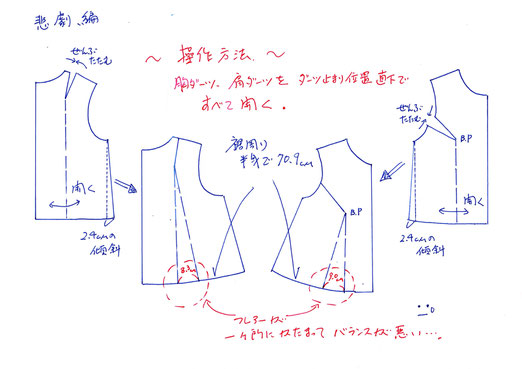 悲劇編
〜 操作方法 〜
胸ダーツ、肩ダーツを ダーツ止まり位置直下で
すべて開く。
ぜんぶ
たたむ
ぜんぶ
たたむ
B.P
開く
2.4cmの
傾斜
裾周り
半身で70.9cm
B.P
開く
2.4cmの
傾斜
フレアーが
一ヶ所にかたまって バランスが悪い…。